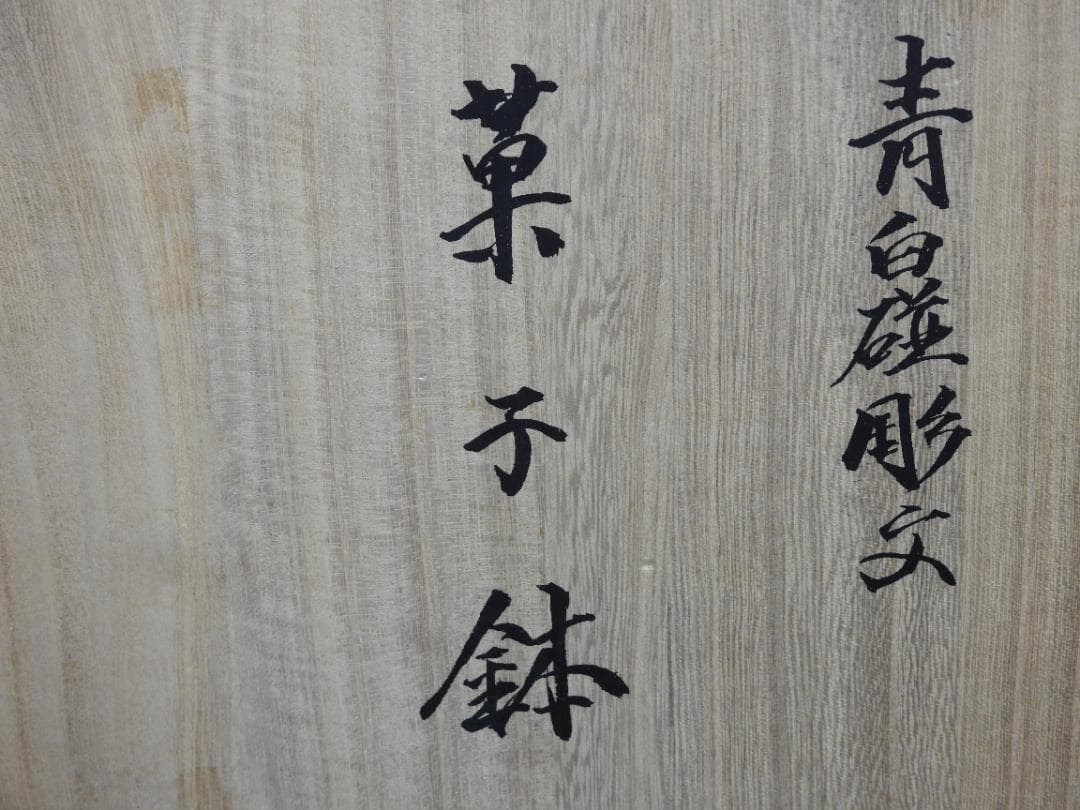 青白磁彫文
菓子鉢